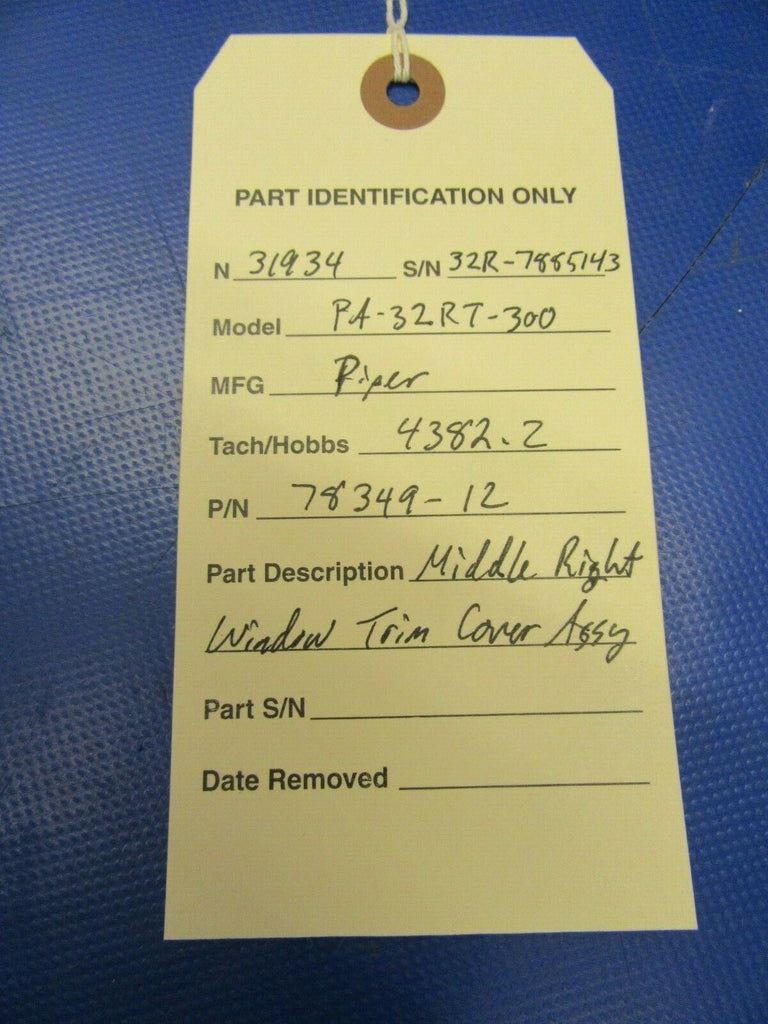 PART IDENTIFICATION ONLY
N 31934 S/N 32R-7885143
Model PA-32RT-300
MFG Piper
Tach/Hobbs 4382.2
P/N 78349-12
Part Description Middle Right
Window Trim Cover Assy
Part S/N
Date Removed